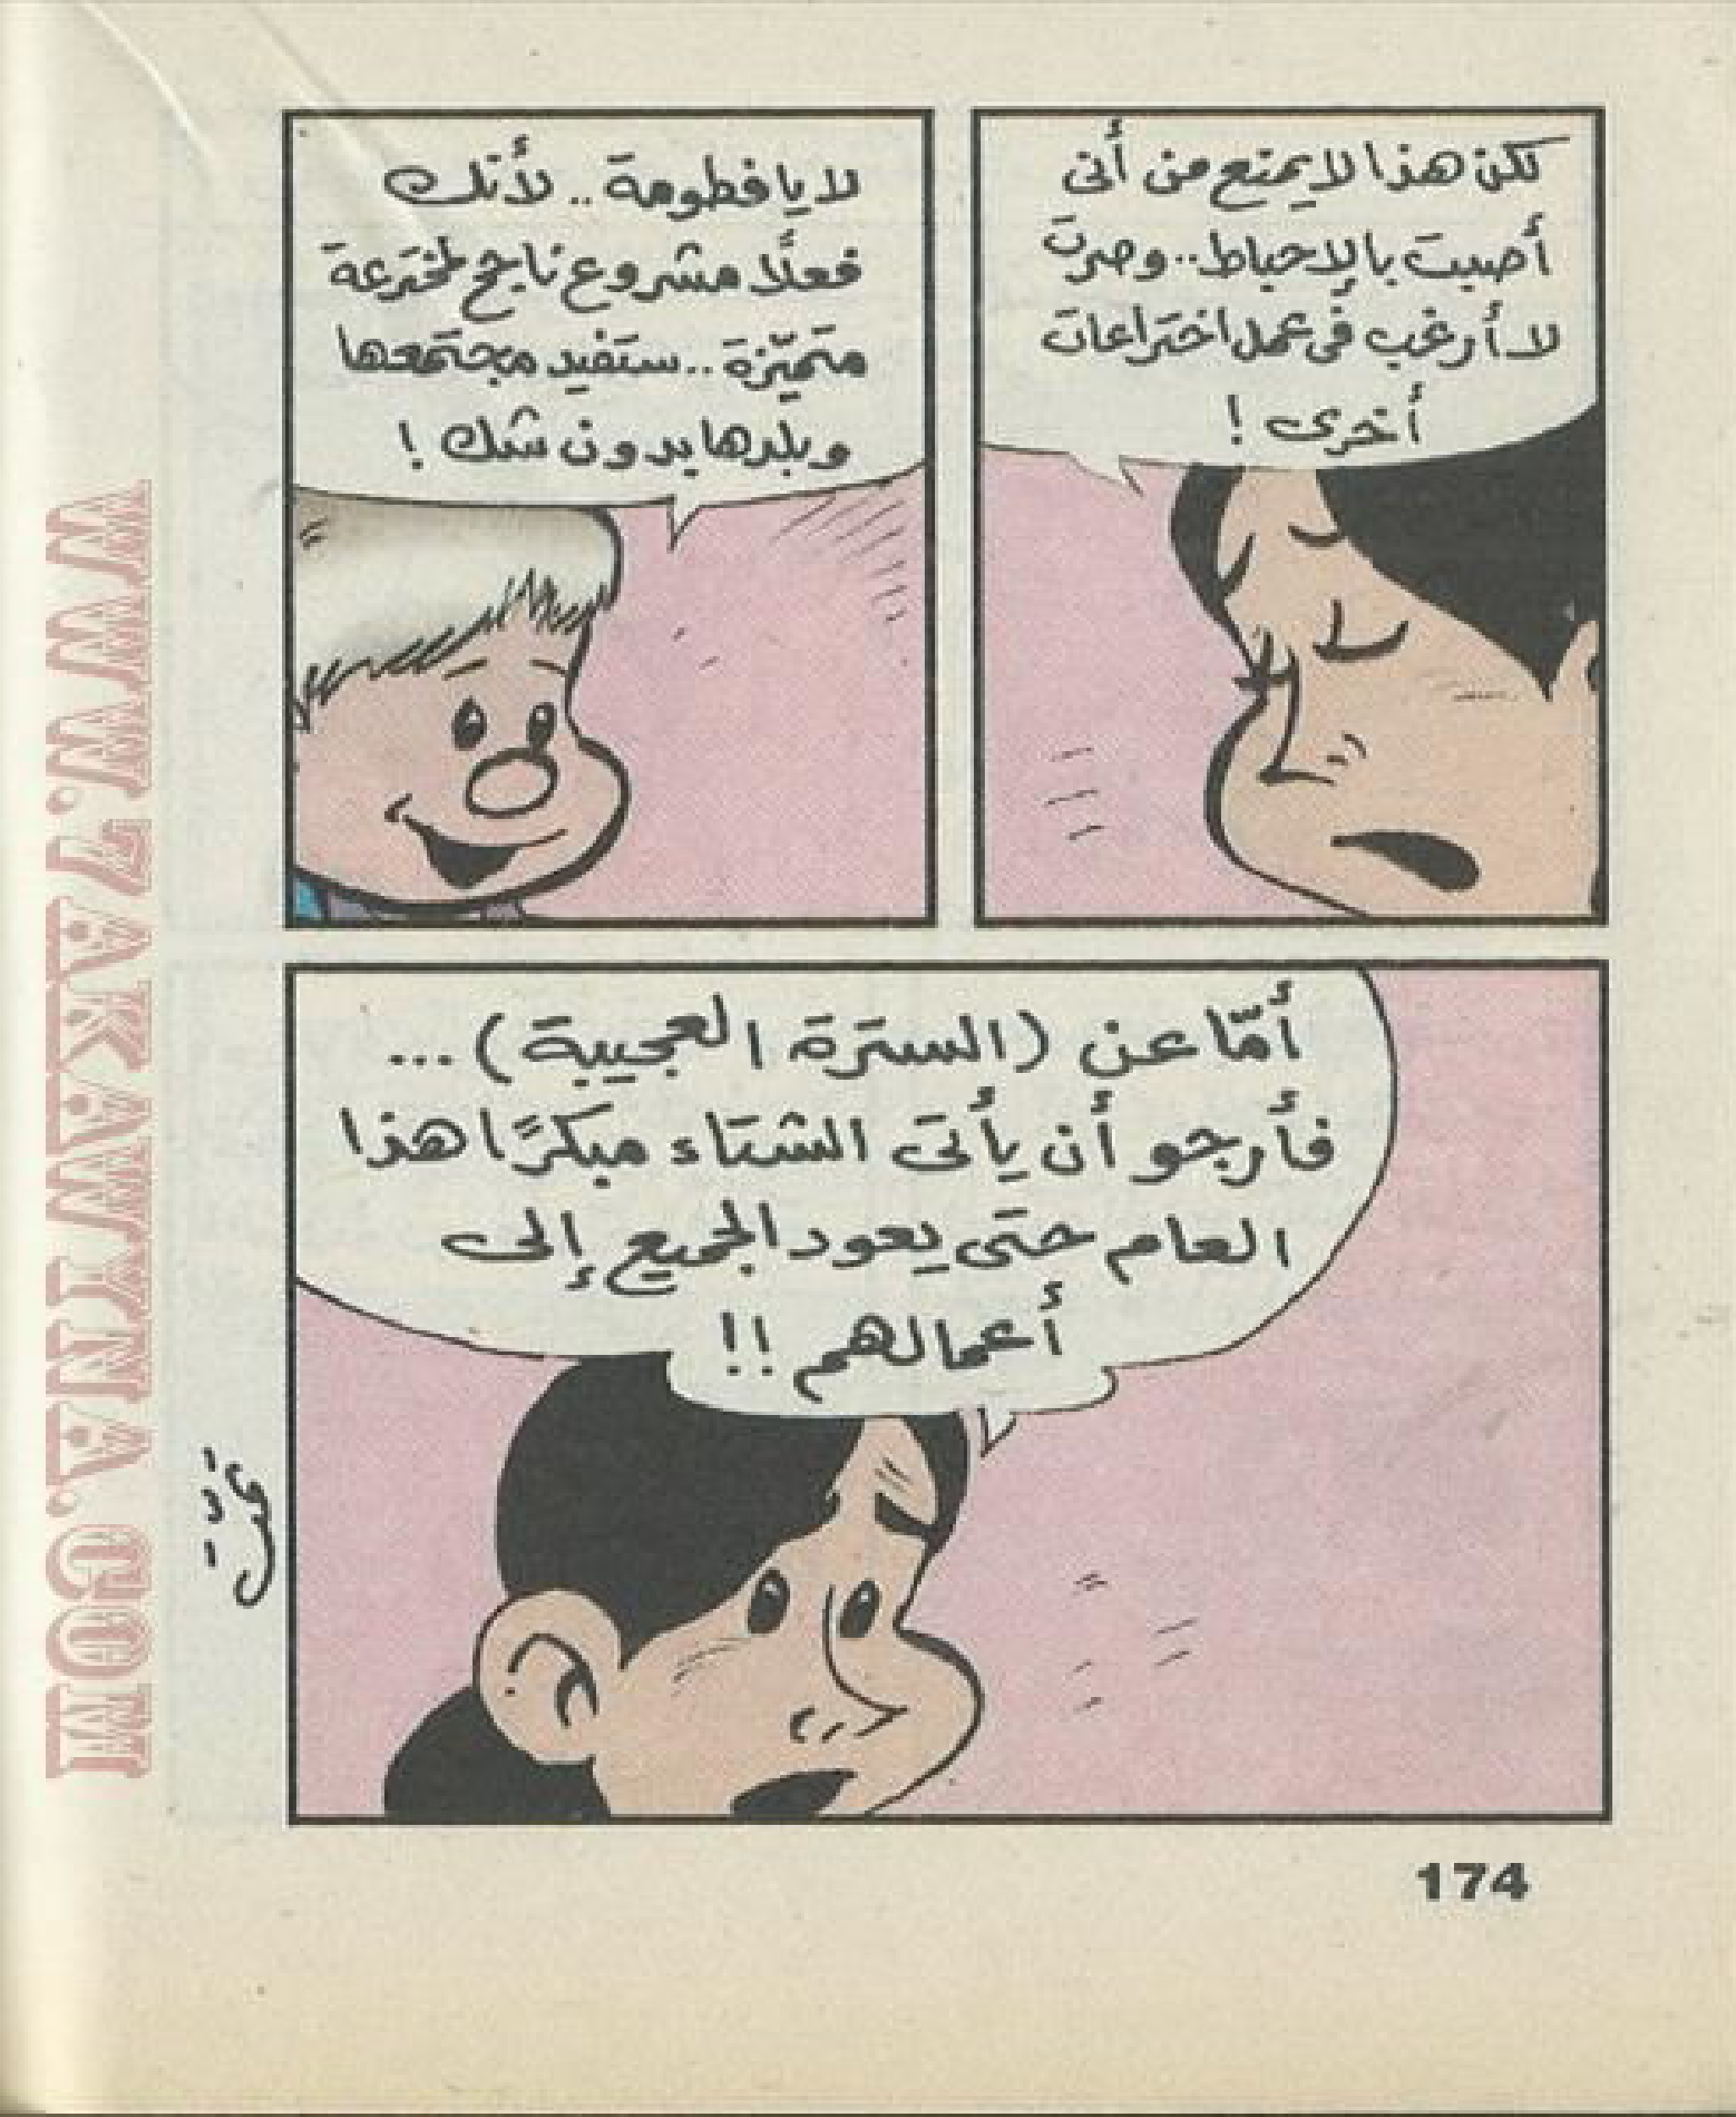 لكن هذا لا يمنع من أنى
أصبت بالإحباط.. وصرت
لا أرغب فى عمل اختراعات
أخرى !
لا يا فطومة .. لأنك
فعلًا مشروع ناجح لمخترعة
متميّزة .. ستفيد مجتمعها
وبلدها بدون شك !
أمّا عن (السترة العجيبة) ...
فأرجو أن يأتى الشتاء مبكرًا هذا
العام حتى يعود الجميع إلى
أعمالهم !!
تمّت
174
WWW.7AKAWITNA.COM